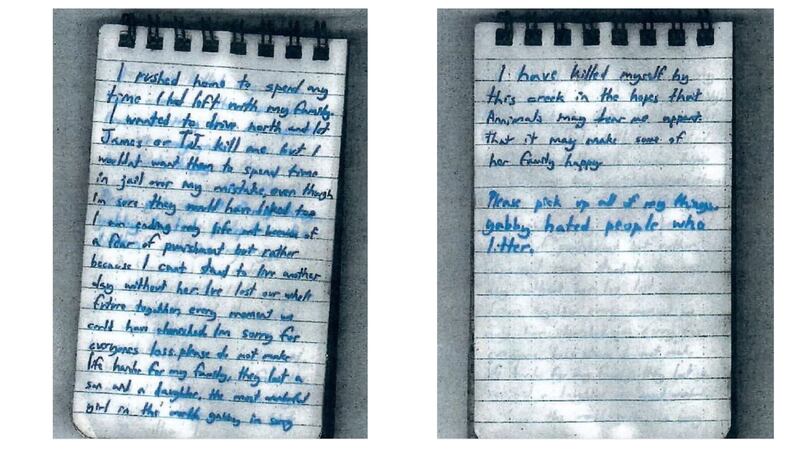 I rushed home to spend any
time I had left with my family.
I wanted to drive north and let
James or TJ kill me but I
wouldnt want them to spend time
in jail over my mistake, even though
Im sure they would have liked too
I am ending my life not because of
a fear of punishment but rather
because I cant stand to live another
day without her. Ive lost our whole
future together, every moment we
could have cherished. Im sorry for
everyones loss. please do not make
life harder for my family, they lost a
son and a daughter, the most wonderful
girl in the world gabby im sorry
I have killed myself by
this creek in the hopes that
Annimals may tear me appart
that it may make some of
her family happy
Please pick up all of my things.
gabby hated people who
litter.